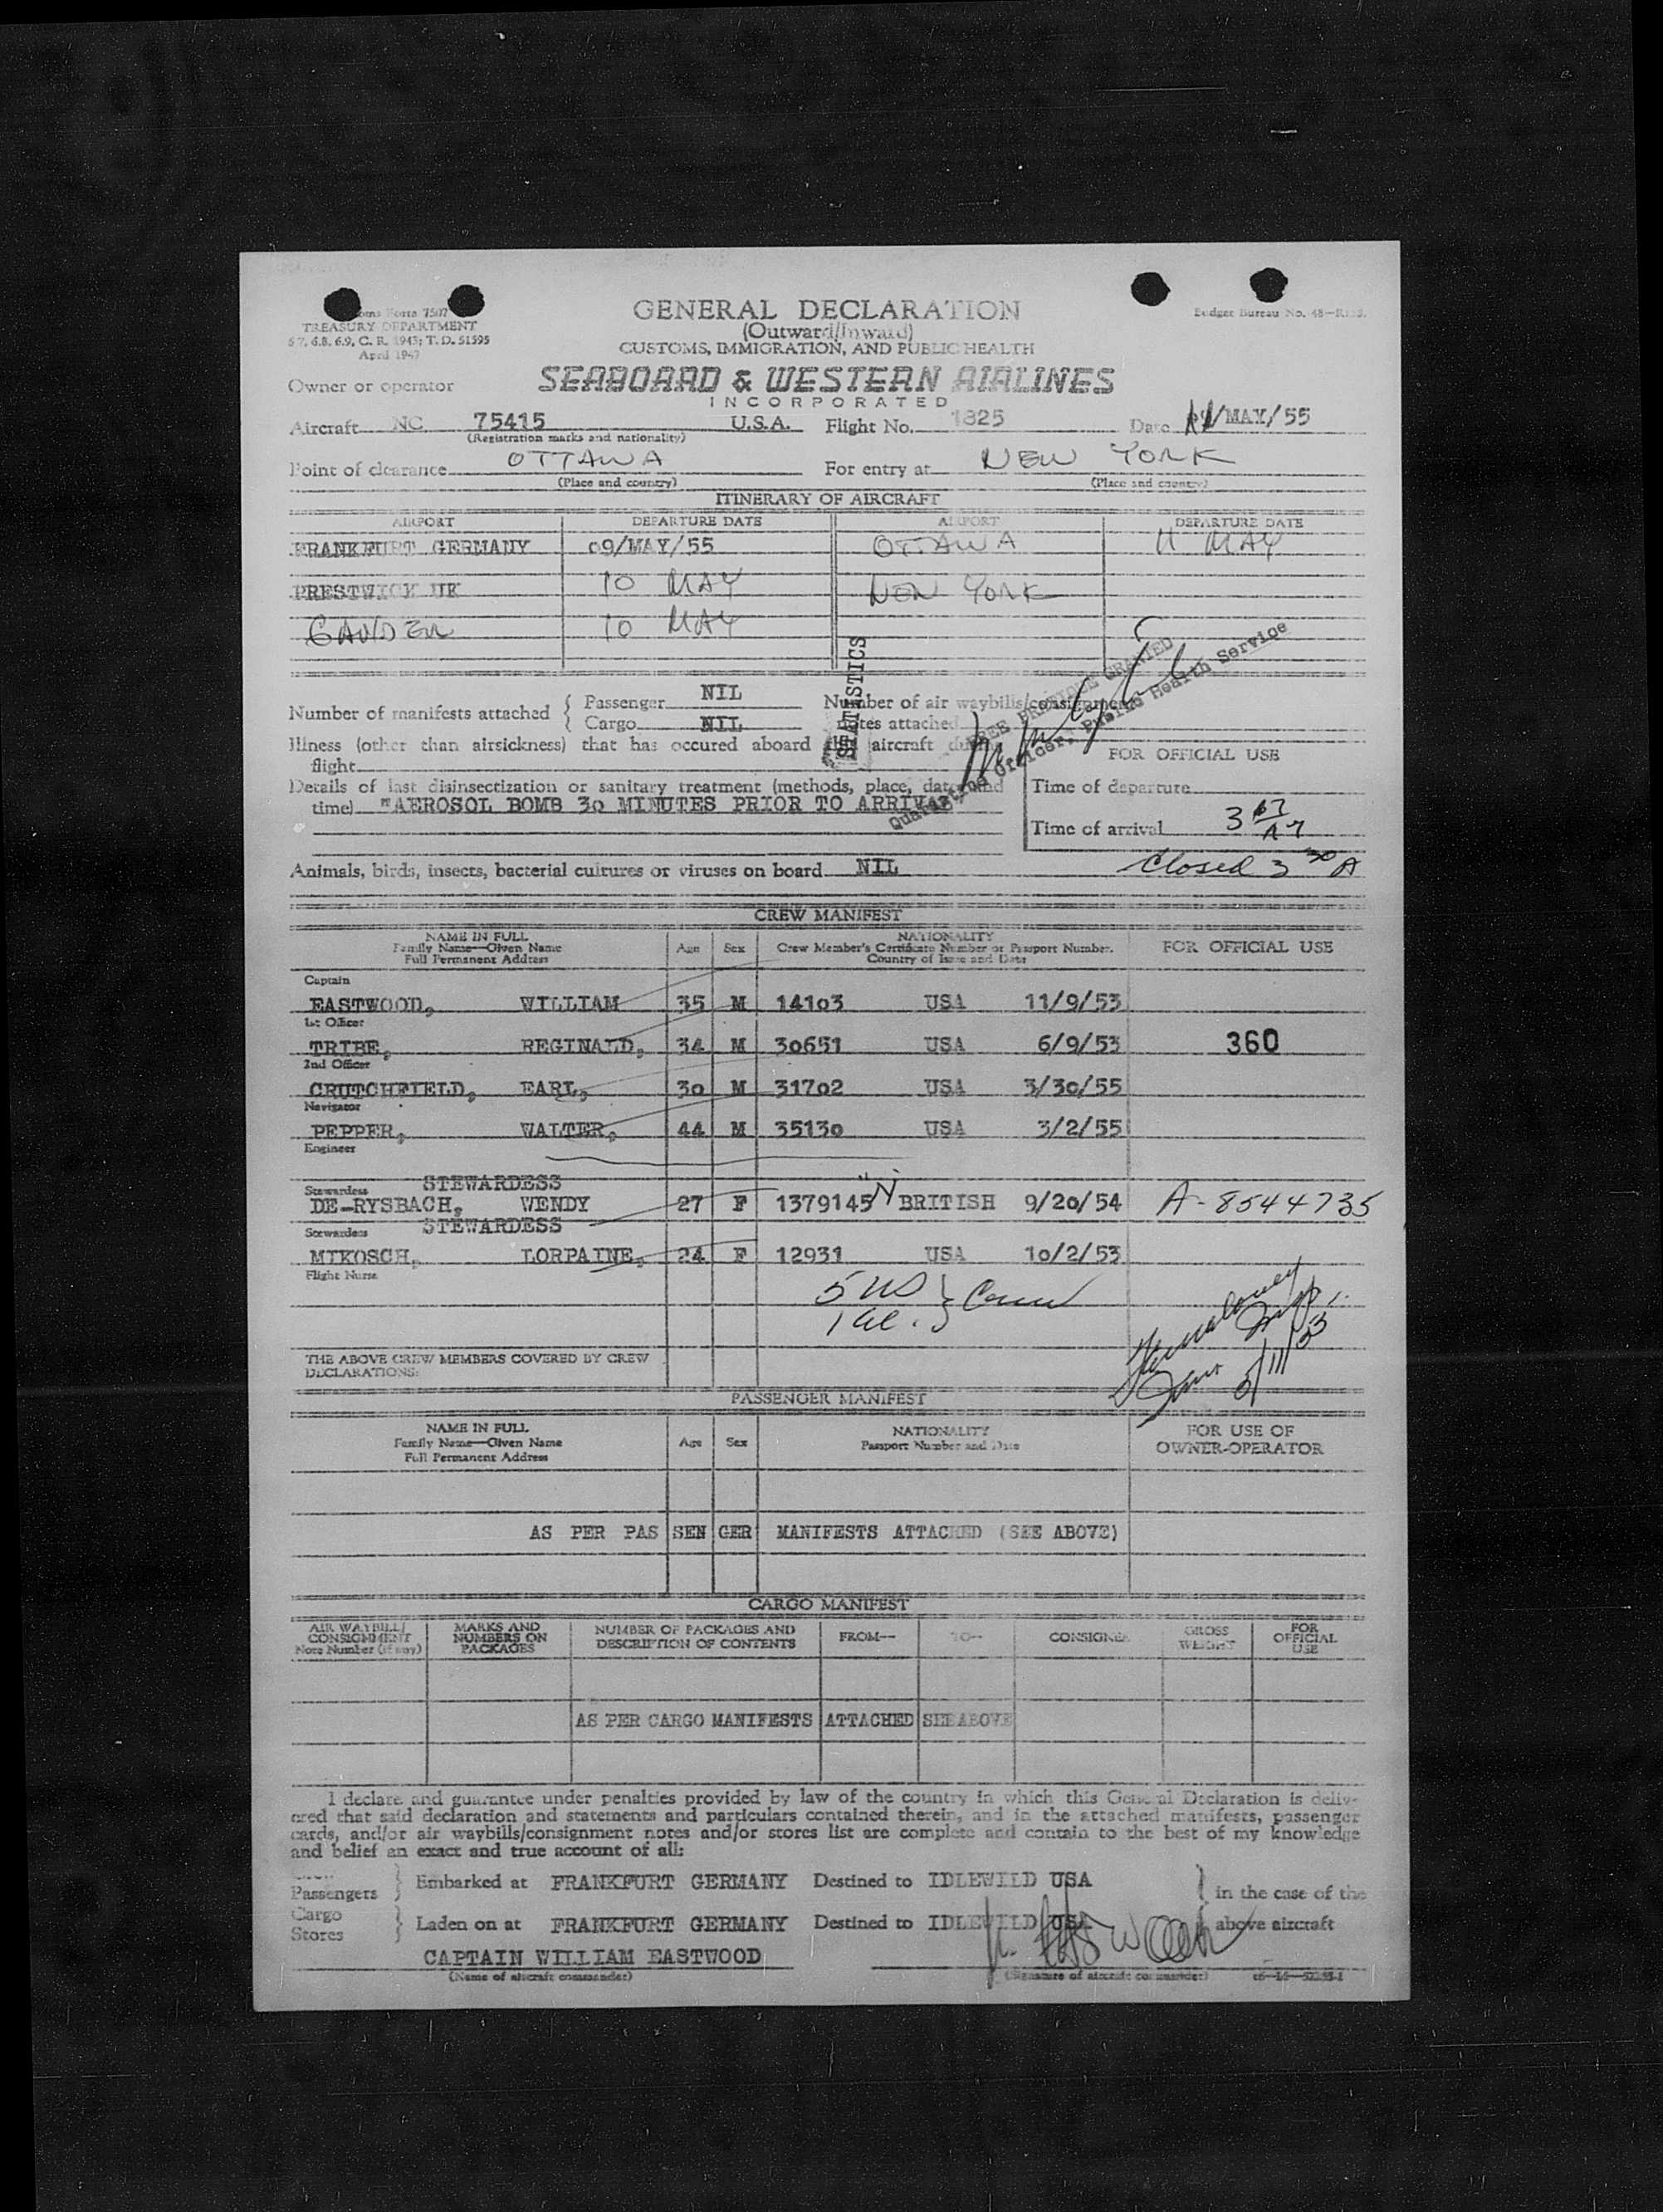 Customs Form 7507
TREASURY DEPARTMENT
6.7, 6.8, 6.9, C. R. 1943; T. D. 51595
April 1947
GENERAL DECLARATION
(Outward/Inward)
CUSTOMS, IMMIGRATION, AND PUBLIC HEALTH
Budget Bureau No. 48—
Owner or operator SEABOARD & WESTERN AIRLINES
INCORPORATED
Aircraft NC 75415 U.S.A. Flight No. 1825 Date /MAY/55
(Registration marks and nationality)
Point of clearance OTTAWA For entry at NEW YORK
(Place and country) (Place and country)
ITINERARY OF AIRCRAFT
AIRPORT DEPARTURE DATE AIRPORT DEPARTURE DATE
FRANKFURT GERMANY 09/MAY/55 OTTAWA 11 MAY
PRESTWICK UK 10 MAY NEW YORK
GANDER 10 MAY
STATISTICS
FREE PRATIQUE GRANTED
Quarantine Officer, Public Health Service
Number of manifests attached { Passenger NIL Number of air waybills/consignment
Cargo NIL notes attached
Illness (other than airsickness) that has occured aboard this aircraft during
flight
FOR OFFICIAL USE
Details of last disinsectization or sanitary treatment (methods, place, date and Time of departure
time) "AEROSOL BOMB 30 MINUTES PRIOR TO ARRIVAL"
Time of arrival 3
Closed 3 30 A
Animals, birds, insects, bacterial cultures or viruses on board NIL
CREW MANIFEST
NAME IN FULL Age Sex NATIONALITY FOR OFFICIAL USE
Family Name—Given Name Crew Member's Certificate Number or Passport Number.
Full Permanent Address Country of Issue and Date
Captain
EASTWOOD, WILLIAM 35 M 14103 USA 11/9/53
1st Officer
TRIBE, REGINALD, 34 M 30651 USA 6/9/53 360
2nd Officer
CRUTCHFIELD, EARL, 30 M 31702 USA 3/30/55
Navigator
PEPPER, WALTER, 44 M 35130 USA 3/2/55
Engineer
STEWARDESS
Stewardess
DE-RYSBACH, WENDY 27 F 1379145 N BRITISH 9/20/54 A-8544735
STEWARDESS
Stewardess
MIKOSCH, LORPAINE, 24 F 12931 USA 10/2/53
Flight Nurse
5 US } Crew
1 al.
5/11/55
THE ABOVE CREW MEMBERS COVERED BY CREW
DECLARATIONS:
PASSENGER MANIFEST
NAME IN FULL Age Sex NATIONALITY FOR USE OF
Family Name—Given Name Passport Number and Date OWNER-OPERATOR
Full Permanent Address
AS PER PAS SEN GER MANIFESTS ATTACHED (SEE ABOVE)
CARGO MANIFEST
AIR WAYBILL/ MARKS AND NUMBER OF PACKAGES AND FROM— TO— CONSIGNEE GROSS FOR
CONSIGNMENT NUMBERS ON DESCRIPTION OF CONTENTS WEIGHT OFFICIAL
Note Number (if any) PACKAGES USE
AS PER CARGO MANIFESTS ATTACHED SEE ABOVE
I declare and guarantee under penalties provided by law of the country in which this General Declaration is deliv-
ered that said declaration and statements and particulars contained therein, and in the attached manifests, passenger
cards, and/or air waybills/consignment notes and/or stores list are complete and contain to the best of my knowledge
and belief an exact and true account of all:
Passengers } Embarked at FRANKFURT GERMANY Destined to IDLEWILD USA } in the case of the
Cargo
Stores } Laden on at FRANKFURT GERMANY Destined to IDLEWILD USA above aircraft
CAPTAIN WILLIAM EASTWOOD
(Name of aircraft commander) (Signature of aircraft commander)